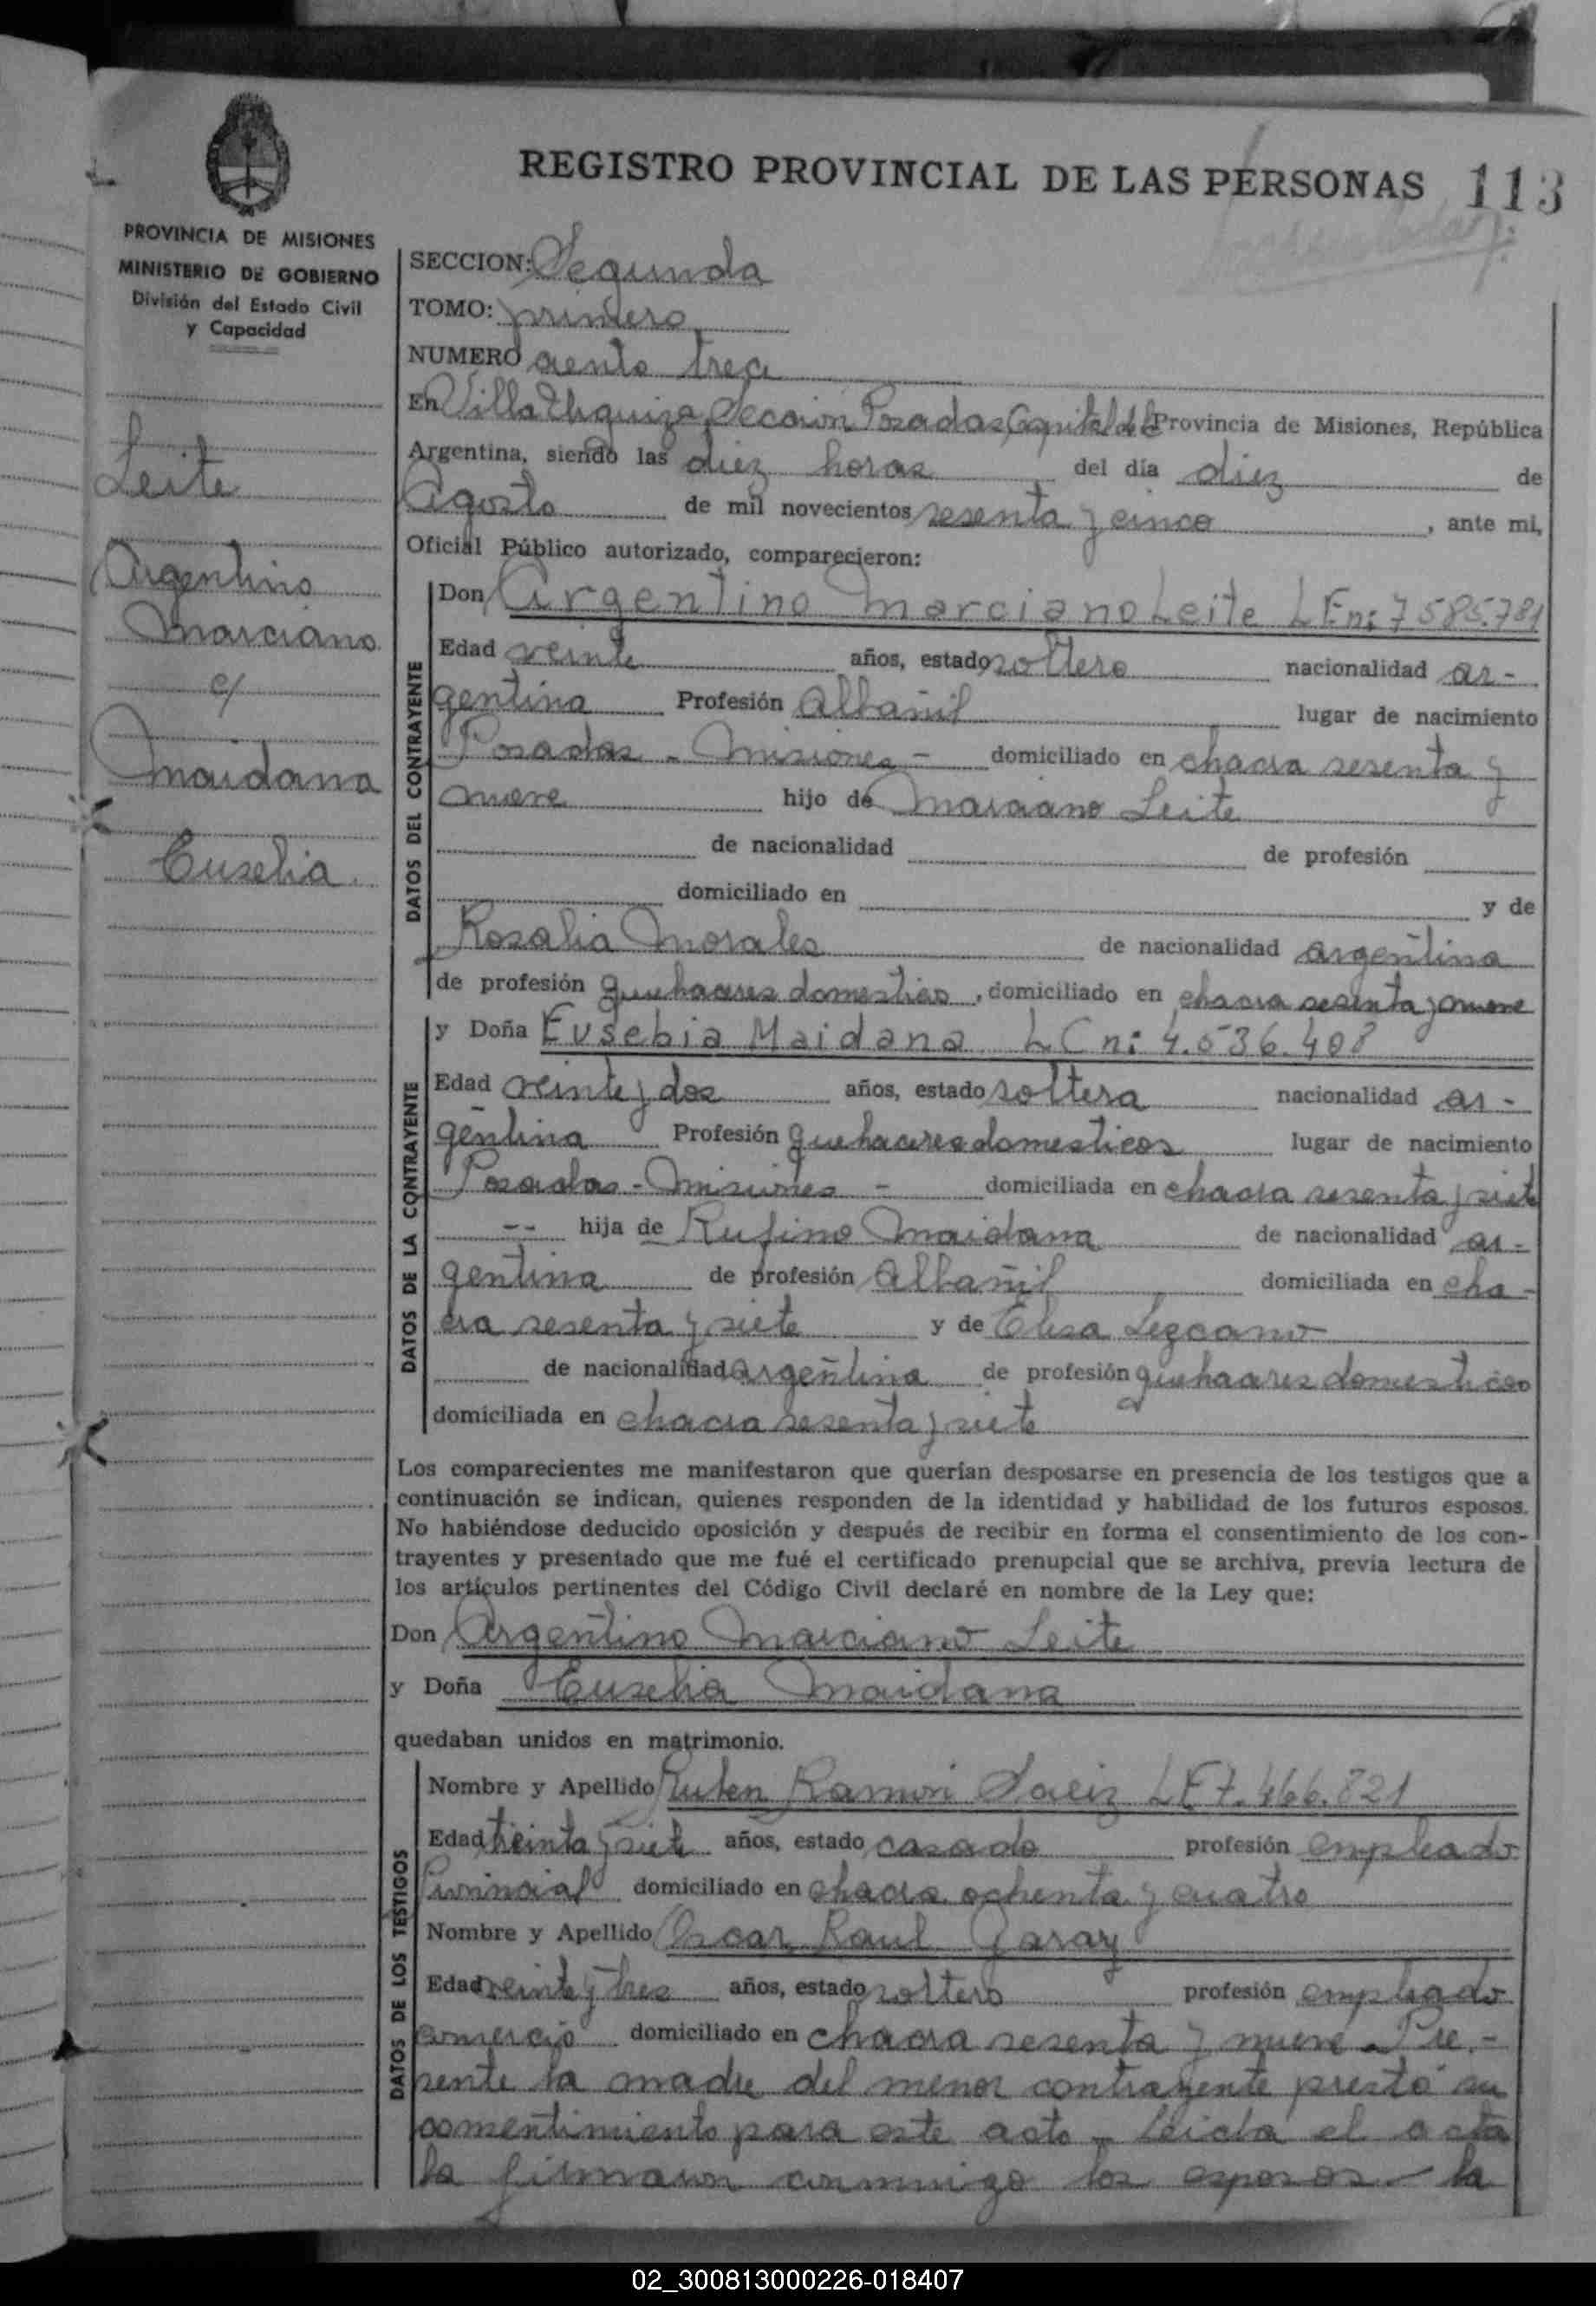 REGISTRO PROVINCIAL DE LAS PERSONAS 113
PROVINCIA DE MISIONES
MINISTERIO DE GOBIERNO
División del Estado Civil
y Capacidad
Leite
Argentino
Marciano
c/
Maidana
Eusebia.
SECCION: Segunda
TOMO: primero
NUMERO ciento trece
En Villa Urquiza, Sección Posadas, Capital de la Provincia de Misiones, República
Argentina, siendo las diez horas del día diez de
Agosto de mil novecientos sesenta y cinco, ante mi,
Oficial Público autorizado, comparecieron:
DATOS DEL CONTRAYENTE
Don Argentino Marciano Leite L En: 7585.781
Edad veinte años, estado soltero nacionalidad ar-
gentina Profesión Albañil lugar de nacimiento
Posadas - Misiones - domiciliado en chacra sesenta y
nueve hijo de Marciano Leite
de nacionalidad de profesión
domiciliado en y de
Rosalia Morales de nacionalidad argentina
de profesión quehaceres domesticos, domiciliado en chacra sesenta y nueve
DATOS DE LA CONTRAYENTE
y Doña Eusebia Maidana L C n: 4.536.408
Edad veinte y dos años, estado soltera nacionalidad ar-
gentina Profesión quehaceres domesticos lugar de nacimiento
Posadas - Misiones - domiciliada en chacra sesenta y siete
-- hija de Rufino Maidana de nacionalidad ar-
gentina de profesión Albañil domiciliada en cha-
cra sesenta y siete y de Elisa Lezcano
de nacionalidad argentina de profesión quehaceres domesticos
domiciliada en chacra sesenta y siete
Los comparecientes me manifestaron que querían desposarse en presencia de los testigos que a
continuación se indican, quienes responden de la identidad y habilidad de los futuros esposos.
No habiéndose deducido oposición y después de recibir en forma el consentimiento de los con-
trayentes y presentado que me fué el certificado prenupcial que se archiva, previa lectura de
los artículos pertinentes del Código Civil declaré en nombre de la Ley que:
Don Argentino Marciano Leite
y Doña Eusebia Maidana
quedaban unidos en matrimonio.
DATOS DE LOS TESTIGOS
Nombre y Apellido Ruben Ramon LE 7.466.821
Edad treinta y siete años, estado casado profesión empleado
Provincial domiciliado en chacra ochenta y cuatro
Nombre y Apellido Oscar Raul Garay
Edad veinte y tres años, estado soltero profesión empleado
comercio domiciliado en chacra sesenta y nueve - Pre-
sente la madre del menor contrayente prestó su
consentimiento para este acto - Leida el acta
la firmaron conmigo los esposos - la
02_300813000226-018407